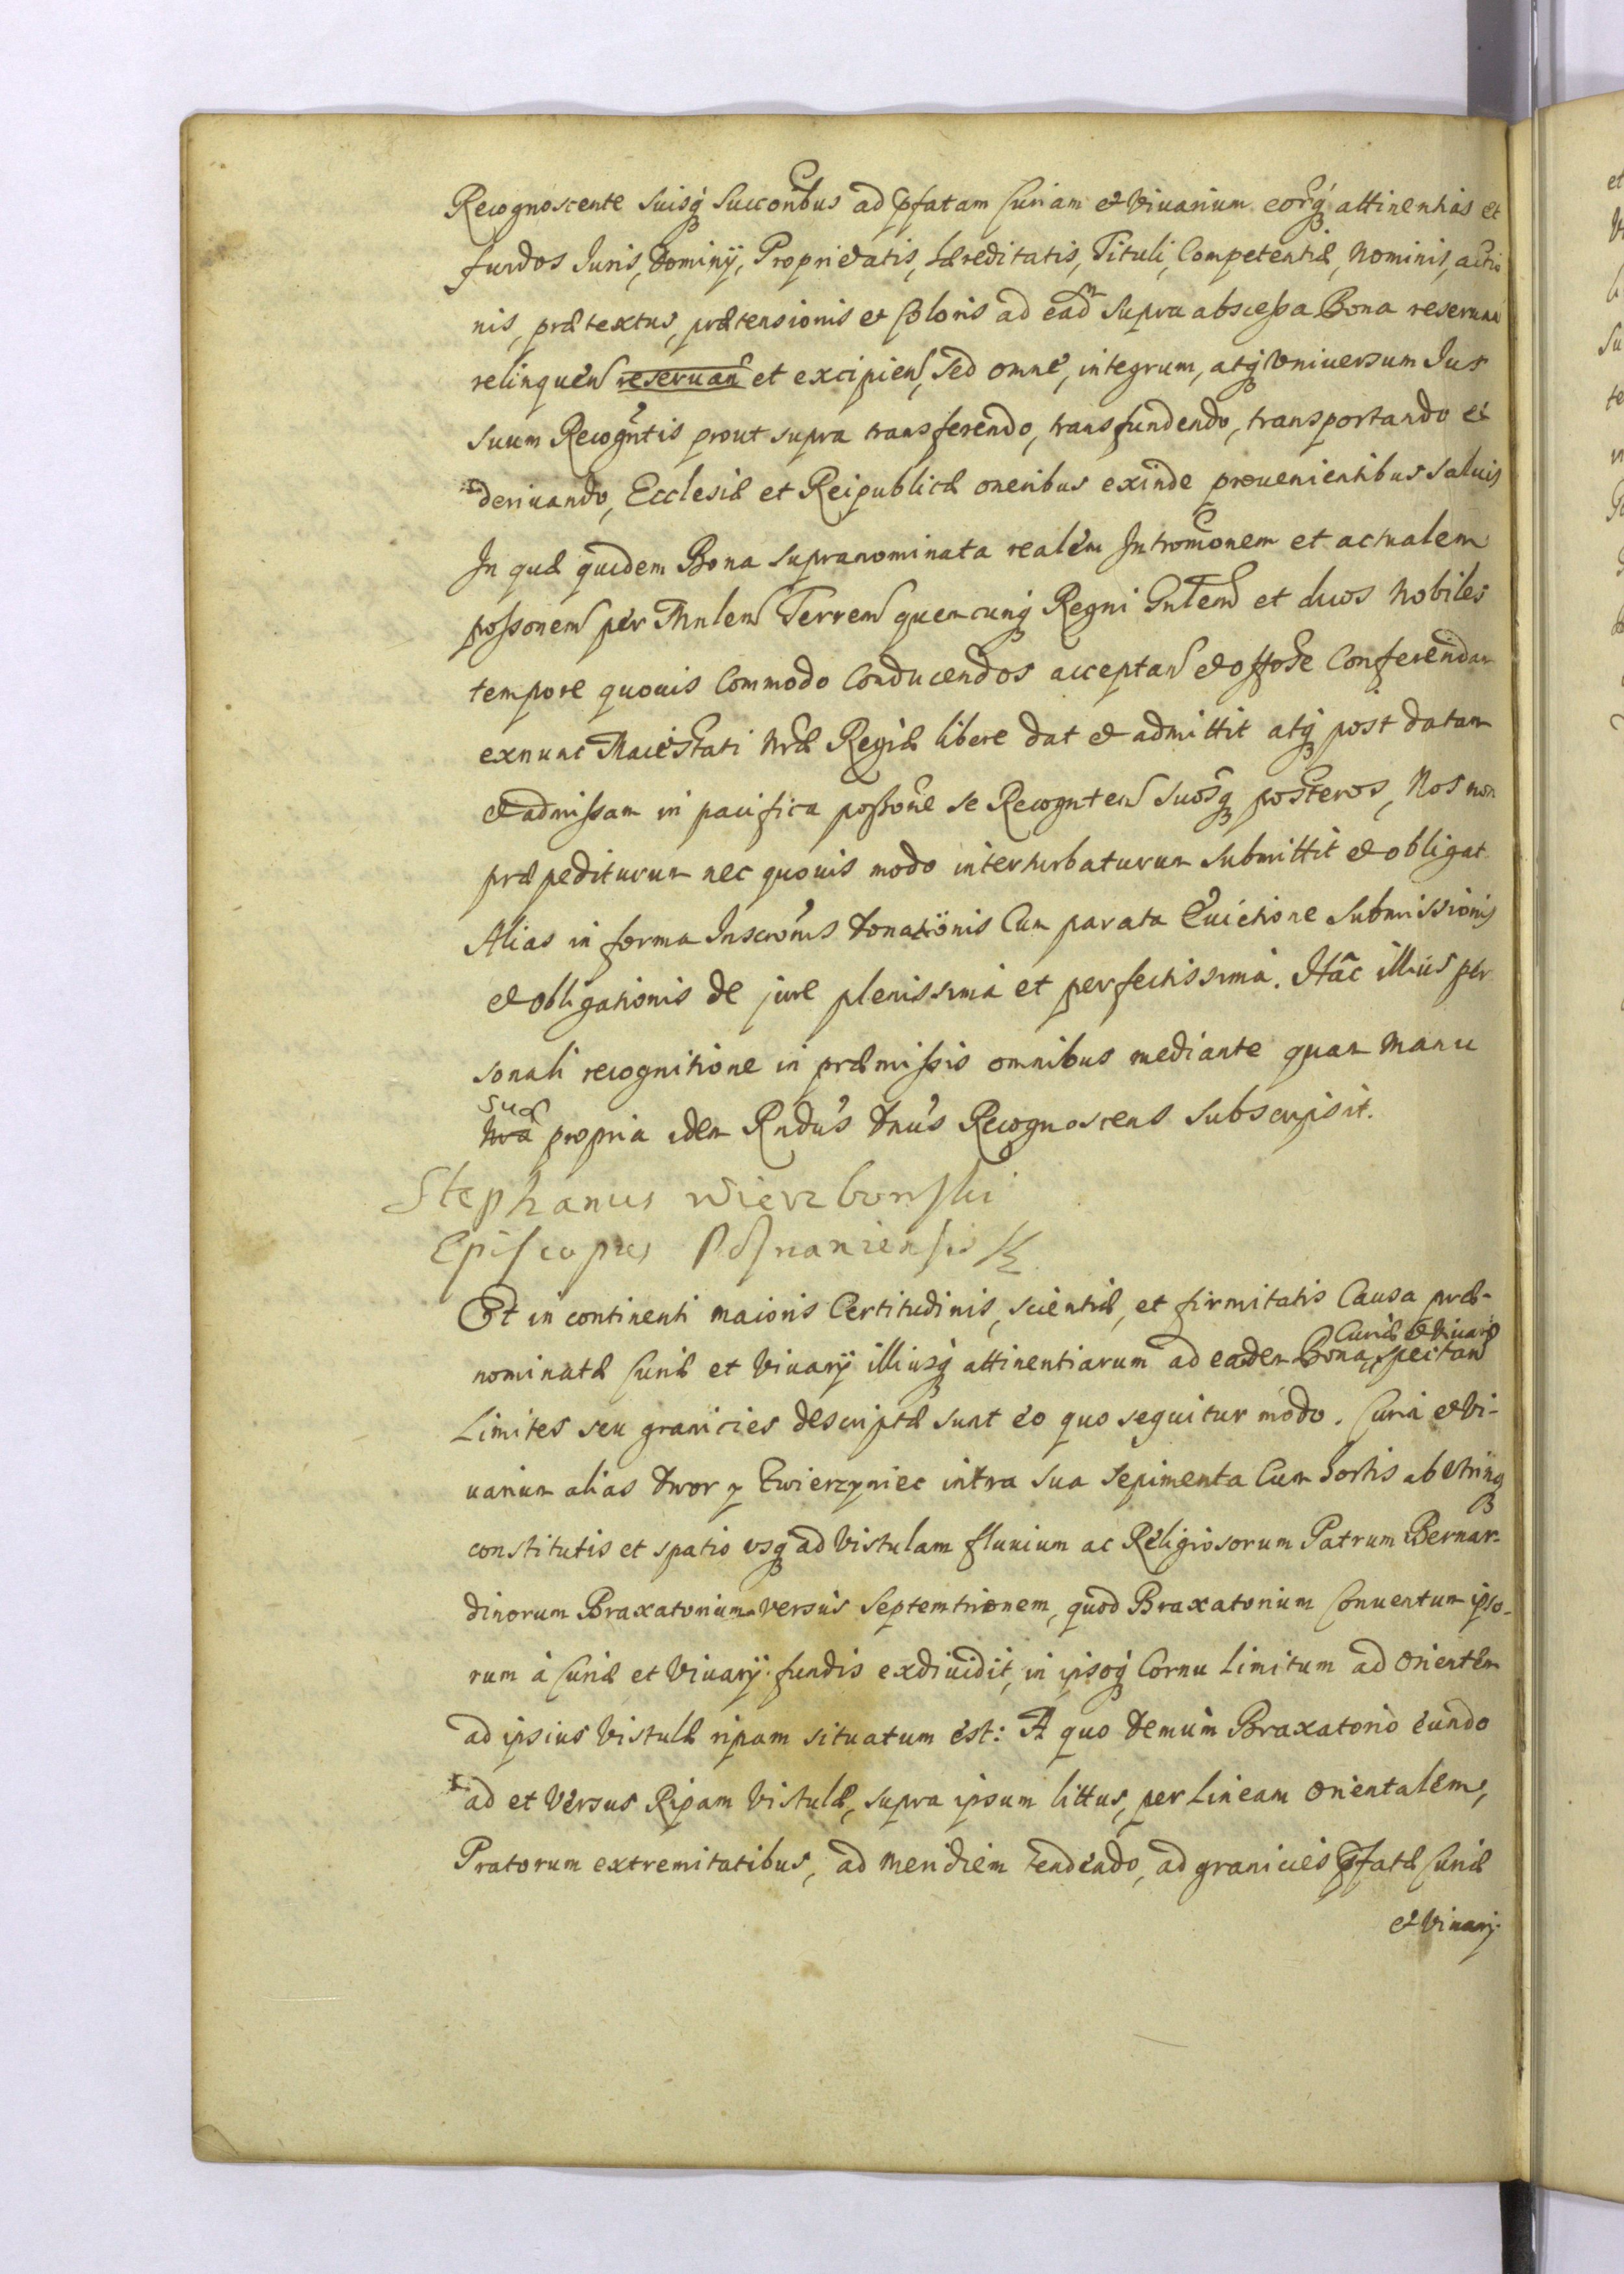 Recognoscente suisq́ Succonbus ad p̃fatam Curiam et Viuarium eorq́ attinentias et
fundos Iuris, Dominÿ, Proprietatis, Hæreditatis, Tituli, Competentiæ, Nominis, actio
nis, prætextus, prætensionis et Coloris ad eadm supra abscessa Bona reseruan
relinquen reseruan et excipien, sed omne, integrum, atq́ Vniuersum Ius
suum Recogntis prout supra transferendo, transfundendo, transportando et
deriuando, Ecclesiæ et Reipublicæ oneribus exinde prouenientibus saluis
In quæ quidem Bona supranominata realem Intromonem et actualem
possonem per Mnlem Terrem quemcunq́ Regni Gnlem et duos Nobiles
tempore quouis Commodo Conducendos acceptan et offose Conferendam
exnunc Maiestati Nræ Regiæ libere dat et admittit atq́ post datam
et admissam in pacifica possone se Recogntem suosq́ posteros, Nos non
præpediturum nec quouis modo interturbaturum submittit et obligat
Alias in forma Inscronis Donationis Cum parata Euictione Submissionis
et obligationis de jure plenissima et perfectissima. Hac illius per
sonali recognitione in præmissis omnibus mediante quam Manu
sua
Nra propria idem Rndus Dnus Recognoscens subscripsit.
Stephanus Wierzbowski
Episcopus Posnaniensis
Et in continenti maioris Certitudinis, scientiæ, et firmitatis Causa præ-
Curiæ et Viuarÿ
nominatæ Curiæ et Viuarÿ illiusq́ attinentiarum ad eadem Bona spectan
Limites seu granicies descriptæ sunt eo quo sequitur modo. Curia et Vi-
uarium alias Dwor y Zwierzyniec intra sua sepimenta Cum hortis ab vtrinq
constitutis et spatio vsq́ ad Vistulam fluuium ac Religiosorum Patrum Bernar-
dinorum Braxatorium versus Septemtrionem, quod Braxatorium Conuentum ipso-
rum à Curiæ et Viuarÿ fundis exdiuidit, in ipsoq́ Cornu Limitum ad Orientem
ad ipsius Vistulæ ripam situatum est: A quo demum Braxatorio eundo
ad et Versus Ripam Vistulæ, supra ipsum littus, per Lineam Orientalem,
Pratorum extremitatibus, ad Meridiem tendendo, ad granicies p̃fatæ Curiæ
et Viuarÿ